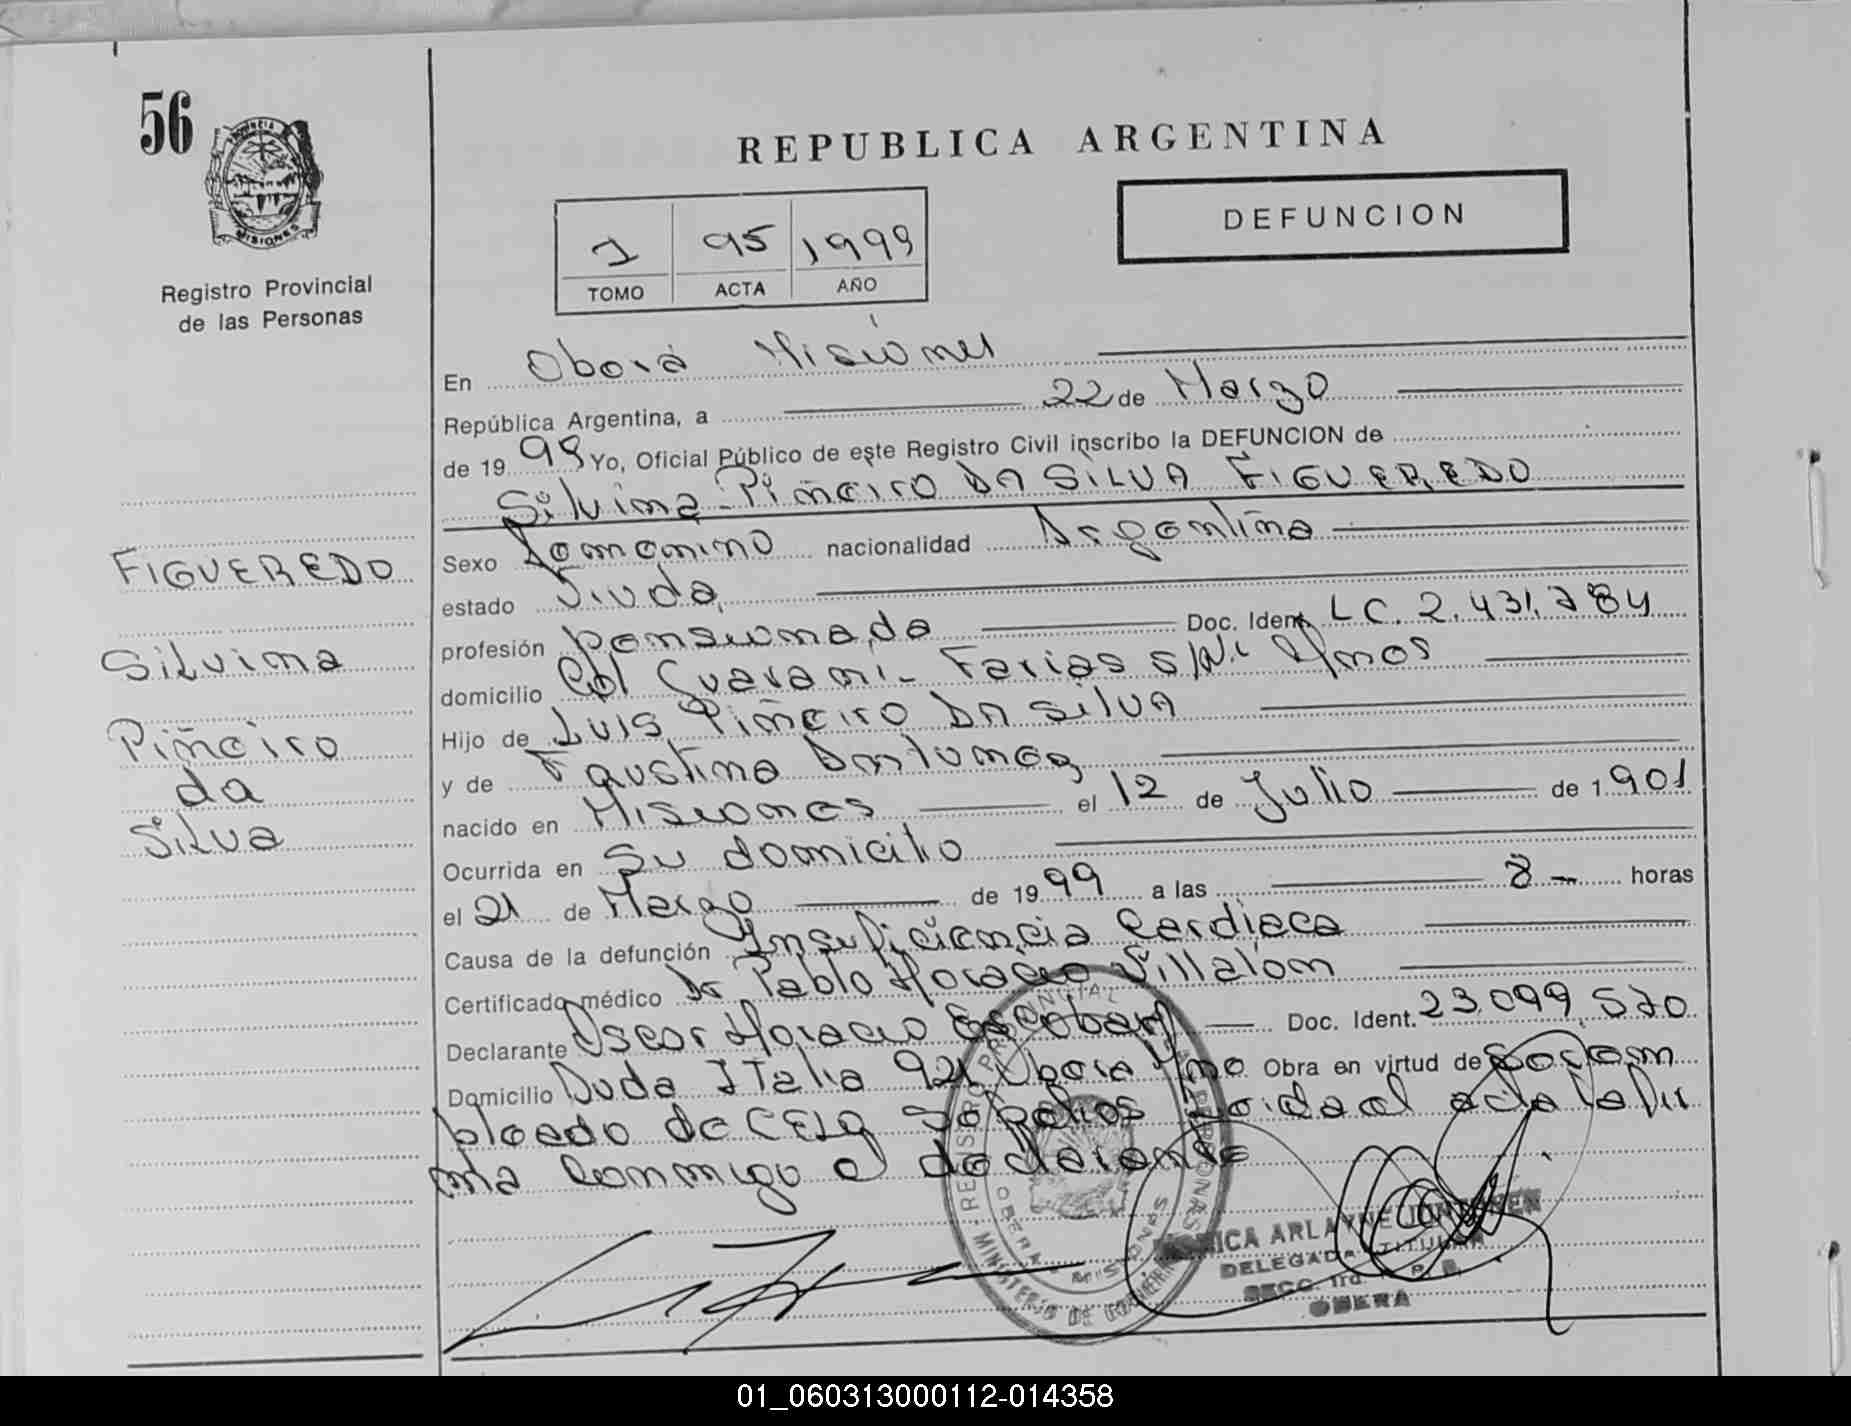 56
PROVINCIA
MISIONES
Registro Provincial
de las Personas
REPUBLICA ARGENTINA
1 95 1999
TOMO ACTA AÑO
DEFUNCION
En Oberá Misiones
República Argentina, a 22 de Marzo
de 19 99 Yo, Oficial Público de este Registro Civil inscribo la DEFUNCION de
Silvina Piñeiro DA SILVA FIGUEREDO
Sexo Femenino nacionalidad Argentina
estado Viuda
profesión pensionada Doc. Ident. LC. 2.431.784
domicilio Col Guarani - Farias s/N: Mnes
Hijo de Luis Piñeiro DA SilVA
y de Faustina Antunez
nacido en Misiones el 12 de Julio de 1901
Ocurrida en Su domicilio
el 21 de Marzo de 19 99 a las 8 - horas
Causa de la defunción Insuficiencia Cardiaca
Certificado médico Dr Pablo Horacio Villalon
Declarante Oscar Horacio Escobar Doc. Ident. 23.099.570
Domicilio Avda Italia 921 Obera Mnes Obra en virtud de
de CELO Sepelios Leida el acta la fir
ma conmigo el declarante
FIGUEREDO
Silvina
Piñeiro
da
Silva
REGISTRO PROVINCIAL DE LAS PERSONAS
MINISTERIO DE GOBIERNO
OBERA MISIONES
ARLAYNE
DELEGADA TITULAR
SECC. 1ra. R. P.
OBERA
01_060313000112-014358